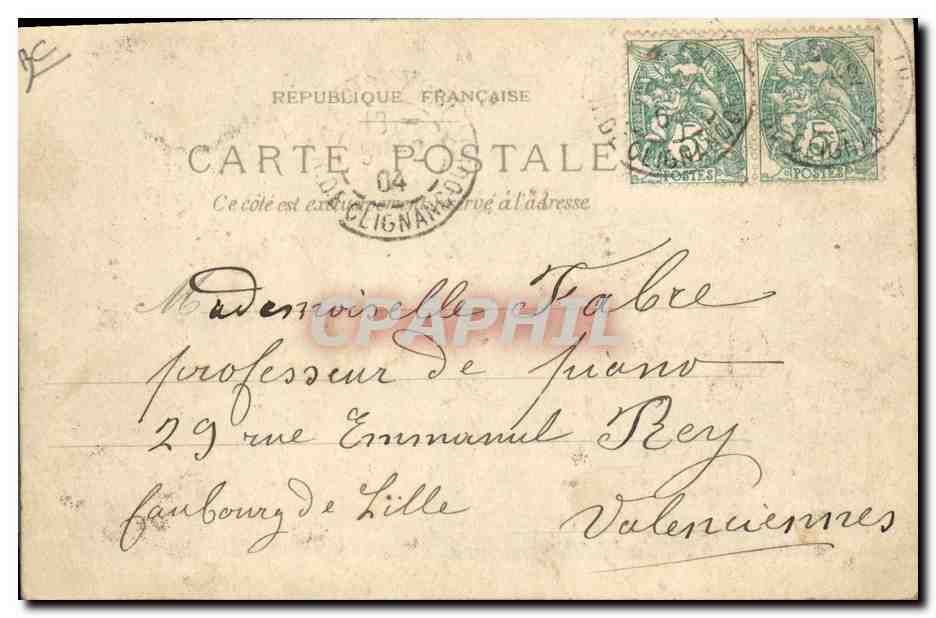 BC
RÉPUBLIQUE FRANÇAISE
CARTE POSTALE
Ce côté est exclusivement réservé à l'adresse
04
CLIGNANCOU
5 5
POSTES POSTES
CLIGNAN
CPAPHIL
Mademoiselle Fabre
professeur de piano
29 rue Emmanuel Rey
faubourg de Lille
Valenciennes